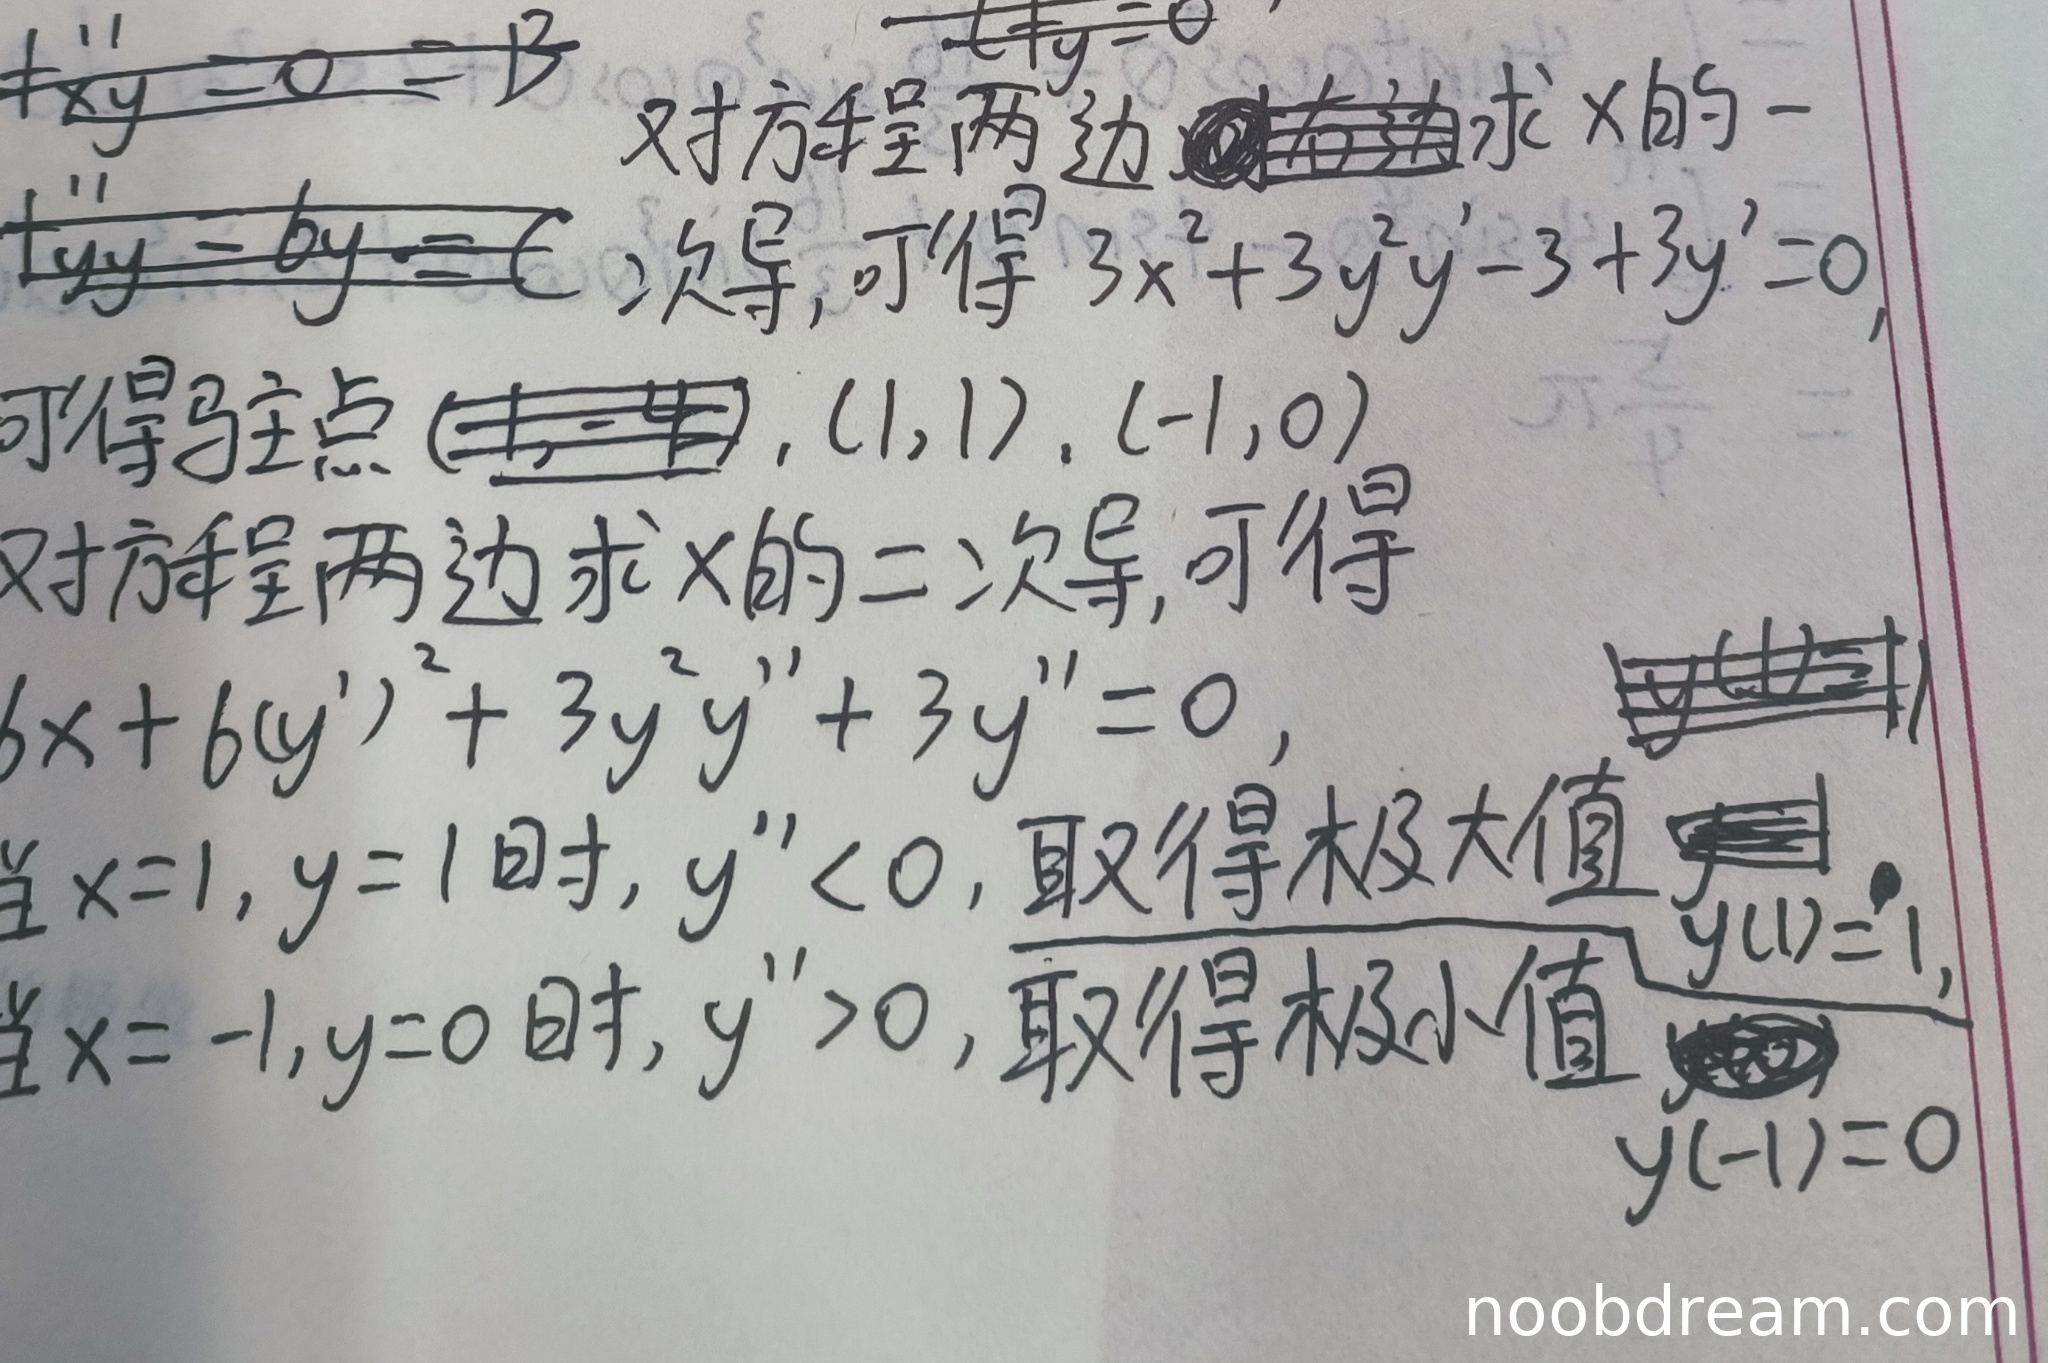 对方程两边求x的一
次导,可得 3x²+3y²y'-3+3y'=0,
可得驻点 , (1,1). (-1,0)
对方程两边求x的二次导,可得
6x+6(y')²+3y²y''+3y''=0,
当x=1,y=1时,y''<0,取得极大值
y(1)=1,
当x=-1,y=0时,y''>0,取得极小值
y(-1)=0
noobdream.com